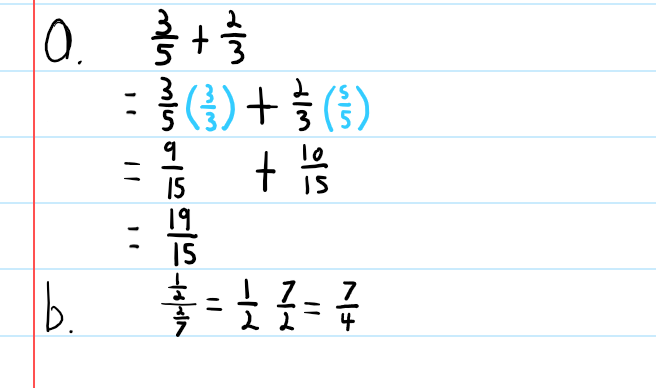 a. 3/5 + 2/3
= 3/5 (3/3) + 2/3 (5/5)
= 9/15 + 10/15
= 19/15
b. (1/2)/(2/7) = 1/2 7/2 = 7/4